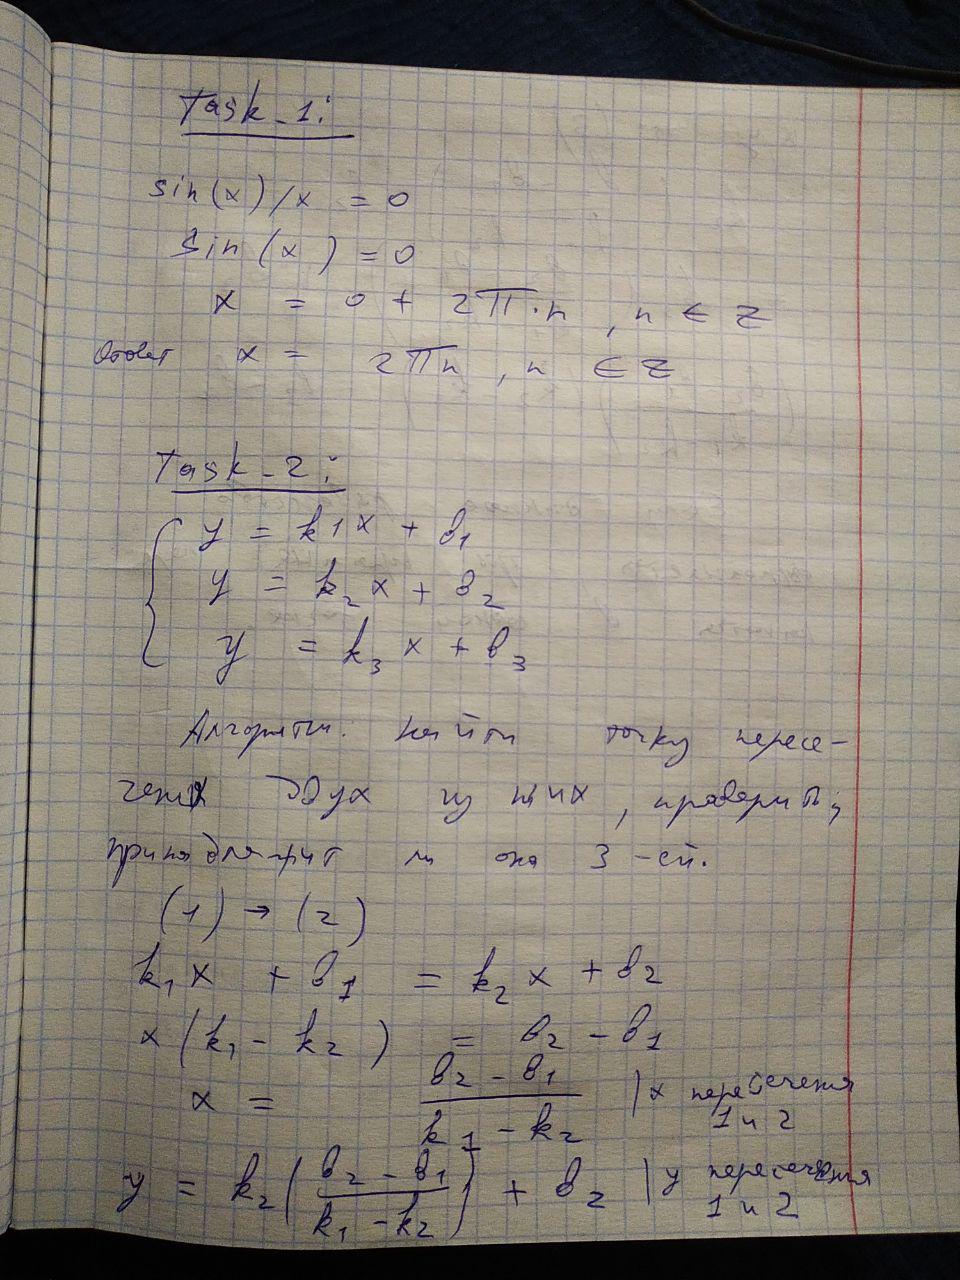 Task_1:
sin(x)/x = 0
sin(x) = 0
x = 0 + 2π·n, n ∈ Z
Ответ x = 2πn, n ∈ Z
Task_2:
y = k1x + b₁
y = k₂x + b₂
y = k₃x + b₃
Алгоритм: найти точку пересе-
чения двух из них, проверить,
принадлежит ли она 3-ей.
(1) → (2)
k₁x + b₁ = k₂x + b₂
x(k₁ - k₂) = b₂ - b₁
x = (b₂ - b₁)/(k₁ - k₂) | x пересечения 1 и 2
y = k₂((b₂ - b₁)/(k₁ - k₂)) + b₂ | y пересечения 1 и 2